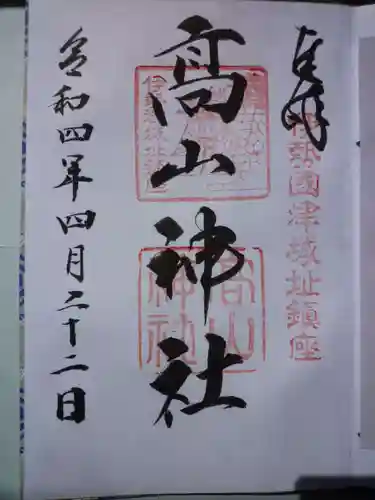 奉拝
伊勢國津城址鎮座
髙山神社
高山神社
令和四年四月二十二日